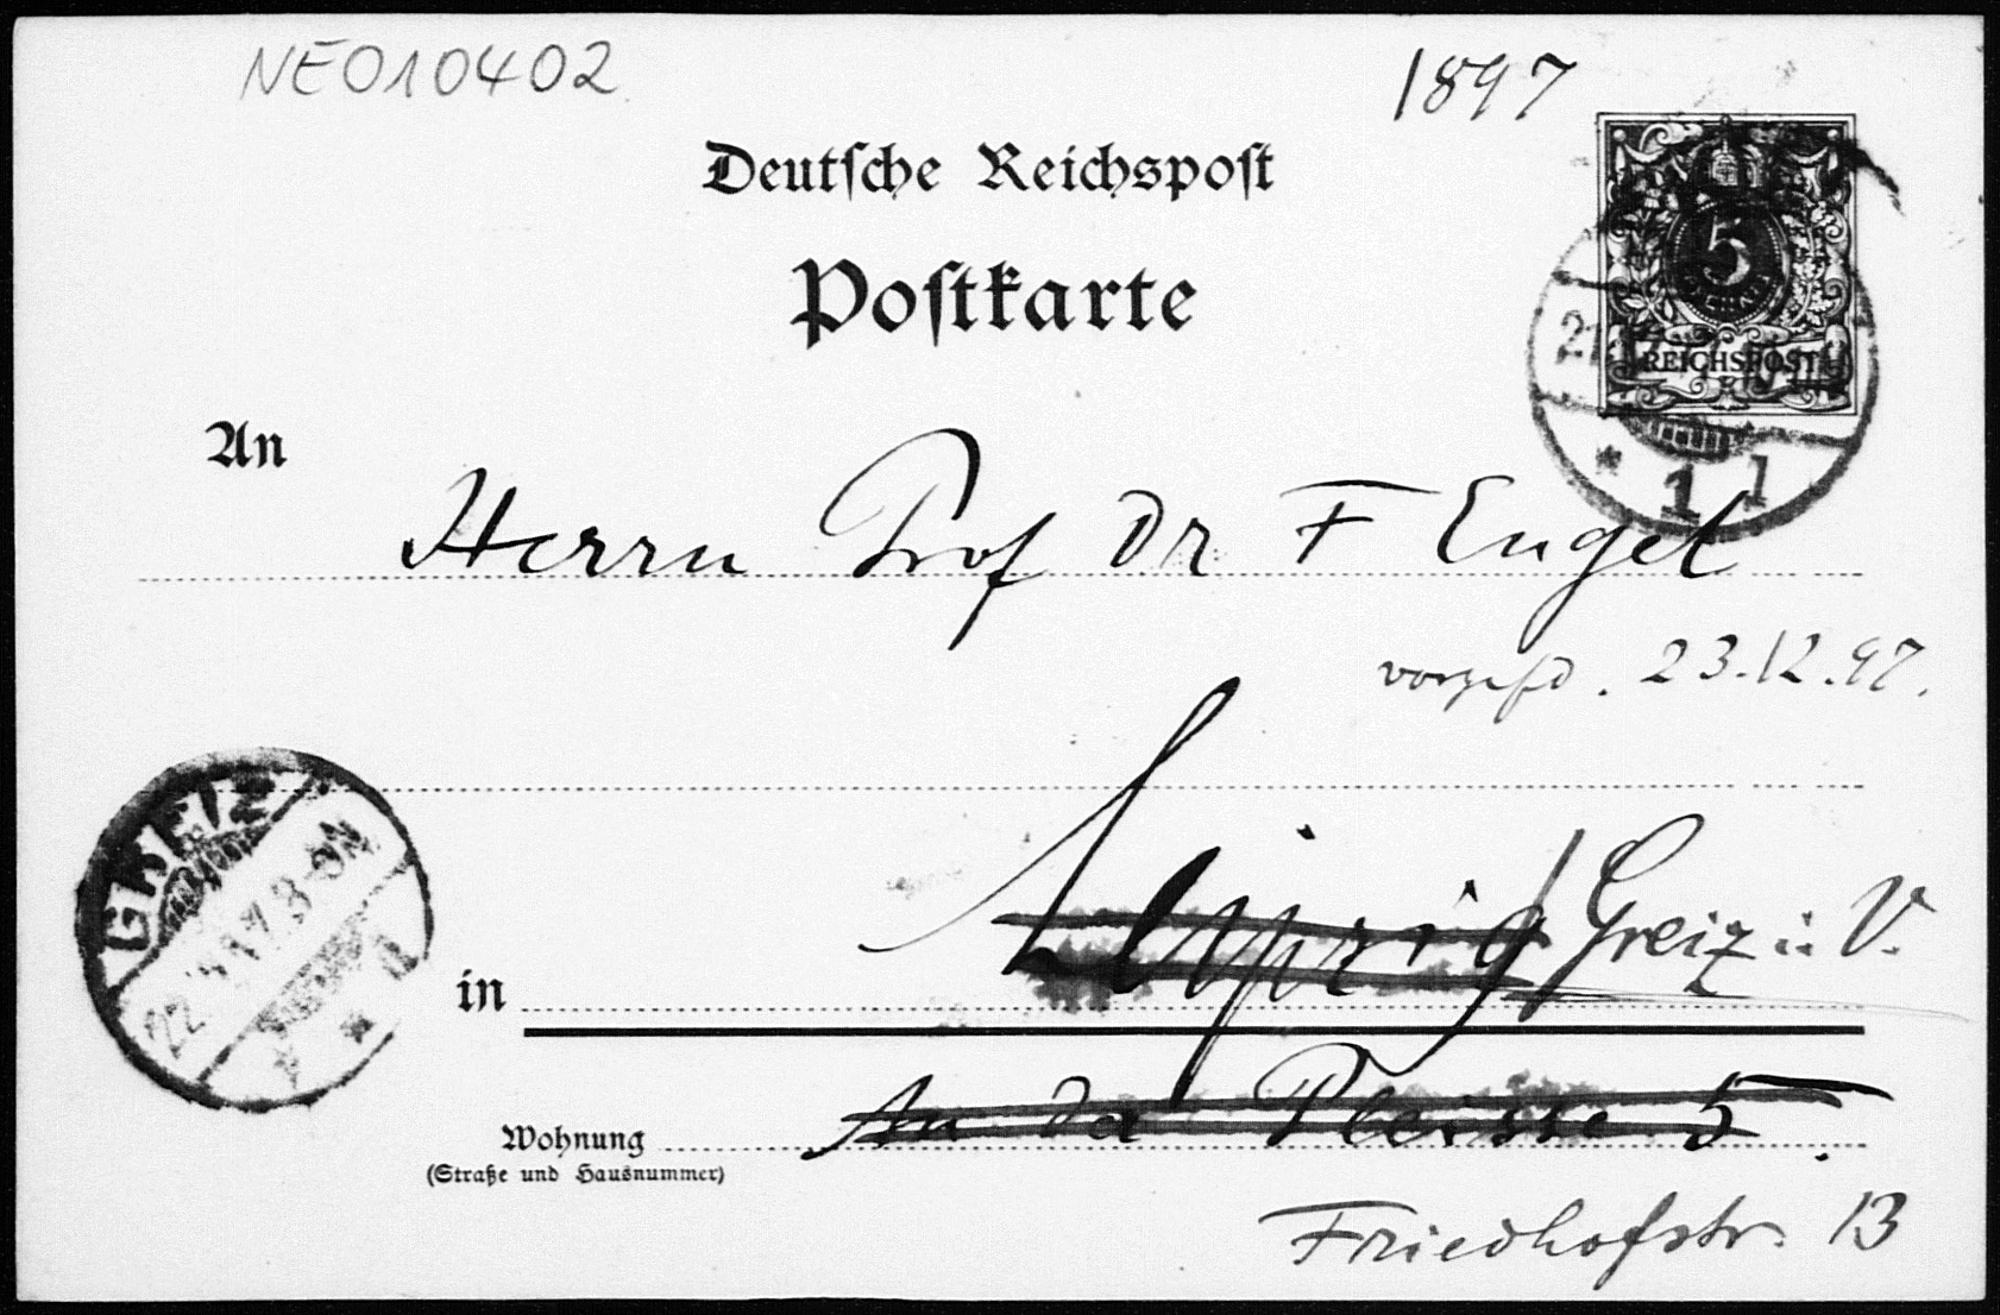 NE010402
1897
Deutsche Reichspost
Postkarte
5
REICHSPOST
1 1
An
Herrn Prof Dr F Engel
23.12.97.
GREIZ
22
in Leipzig Greiz i. V.
Wohnung An der Pleisse 5.
(Straße und Hausnummer)
Friedhofstr. 13